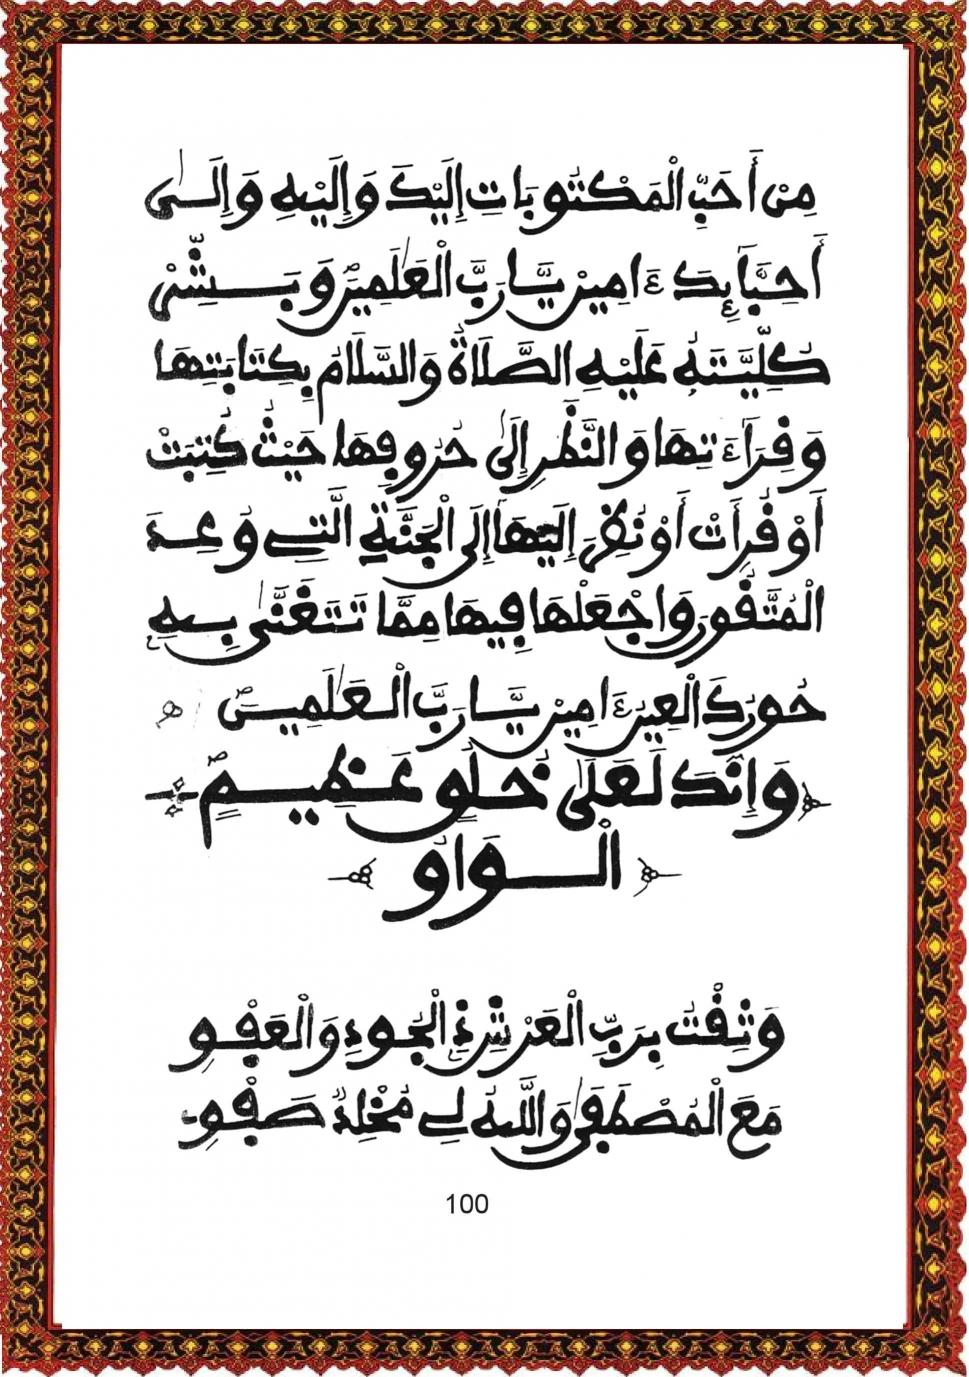 مِنْ أَحَبِّ الْمَكْتُوبَاتِ إِلَيْكَ وَإِلَيْهِ وَإِلَىٰ
أَحِبَّآئِكَ ءَامِين يَّا رَبَّ الْعَٰلَمِينَ وَبَشِّرْ
كُلِّيَّتَهُ عَلَيْهِ الصَّلَاةُ وَالسَّلَامُ بِكِتَابَتِهَا
وَقِرَاءَتِهَا وَالنَّظَرِ إِلَىٰ حُرُوفِهَا حَيْثُ كُتِبَتْ
أَوْ قُرِأَتْ أَوْ نُظِرَ إِلَيْهَا إِلَى الْجَنَّةِ الَّتِي وُعِدَ
الْمُتَّقُونَ وَاجْعَلْهَا فِيهَا مِمَّا تَتَغَنَّىٰ بِهِ
حُورُكَ الْعِينُ ءَامِين يَّا رَبَّ الْعَٰلَمِينَ
وَإِنَّكَ لَعَلَىٰ خُلُقٍ عَظِيمٍ
الْوَاوُ
وَثِقْتُ بِرَبِّ الْعَرْشِ ذِي الْجُودِ وَالْعَفْوِ
مَعَ الْمُصْطَفَىٰ وَاللَّهُ لِي مُخْلِدٌ صَفْوِي
100